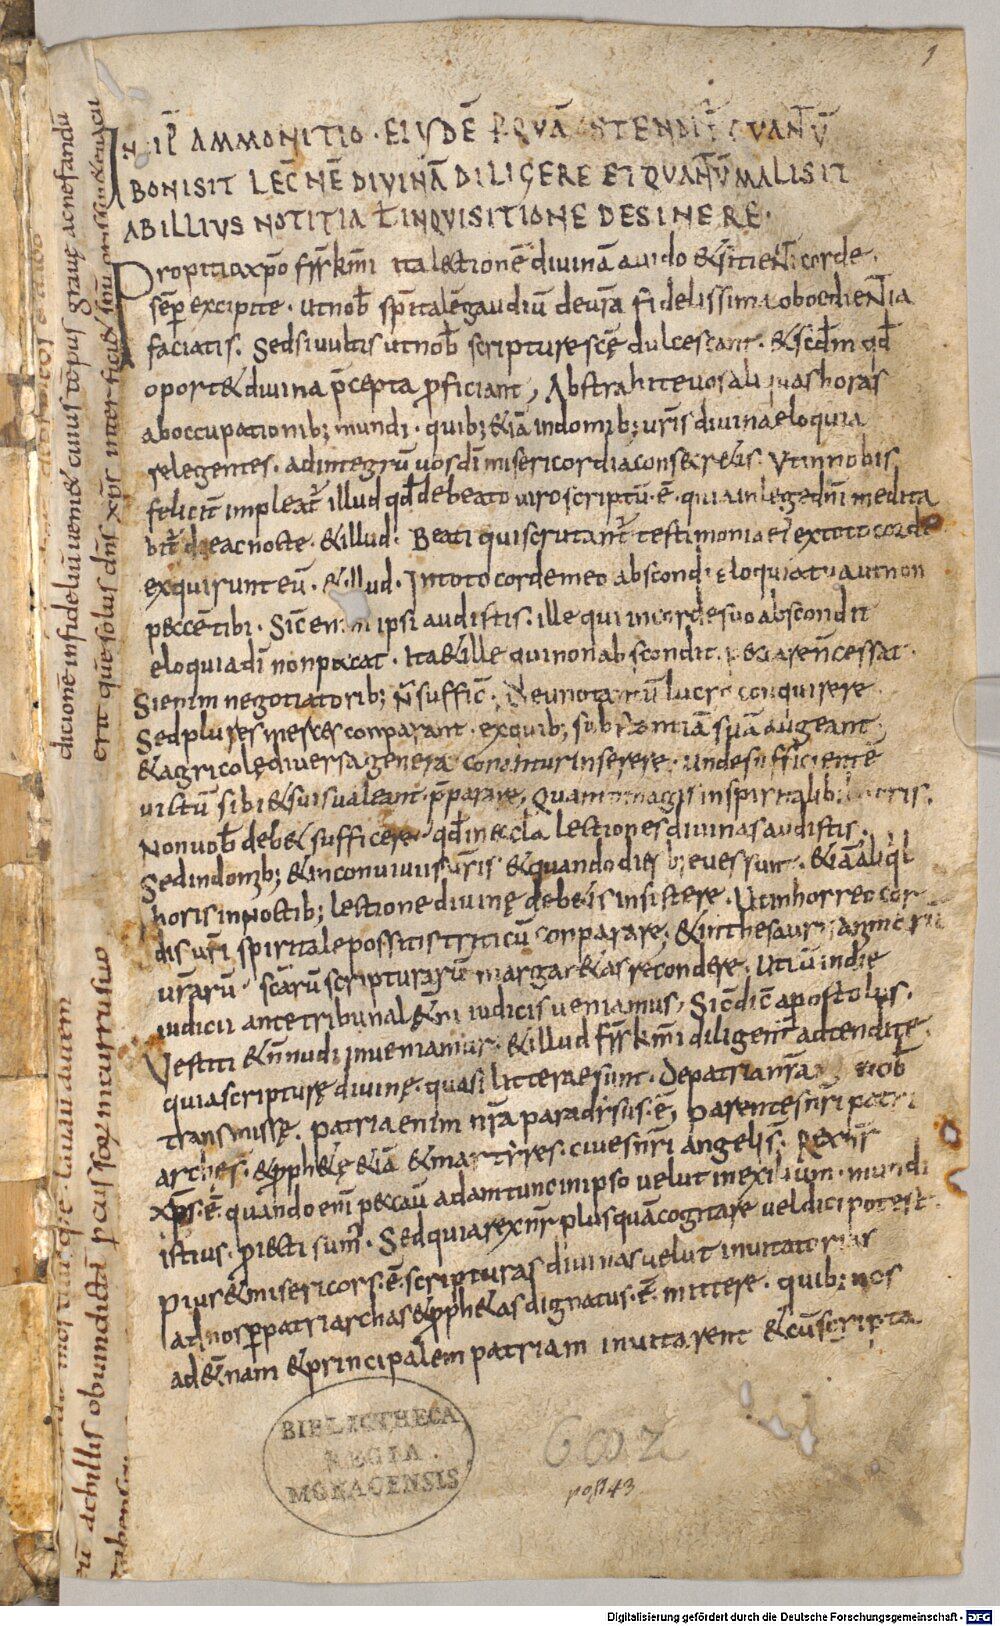 1
INCIP AMMONITIO · EIVSDĒ P QVĀ OSTENDIT QVANTV̄
BONI SIT LECT̄NĒ DIVINĀ DILIGERE ET QVANTV̄ MALI SIT
AB ILLIVS NOTITIA t̄ INQVISITIONE DESINERE ·
Propitio xp̄o fr̄s km̄i ita lectionē divinā auido & sitienti corde
sēp excipite · ut nob̄ sp̄italē gaudiū de ur̄a fidelissima oboedientia
faciatis. Sed si uultis ut nob̄ scripture scē dulcescant · & scd̄m qd̄
oport& divina p̄cepta proficiant, Abstrahite uos aliquas horas
ab occupationib; mundi · quib; & iā in domib; ur̄is divina eloquia
relegentes · ad integrū uos dī misericordia consecretis · Ut in nobis
felicit̄ impleat̄ illud qd̄ de beato viro scriptū · ē · quia in lege dn̄i medita
bit̄ die ac nocte · & illud · Beati qui scrutant̄ testimonia ei ex toto corde
exquirunt eū · & illud · In toto corde meo abscondi eloquia tua ut non
peccē tibi · Sic̄ enim ipsi audistis · ille qui in corde suo abscondit
eloquia dī non peccat · Ita & ille qui non abscondit · peccare n̄ cessat ·
Si enim negotiatorib; n̄ suffic̄ · De una tantū lucra conquirere
Sed plures merces conparant · ex quib; substantiā suā augeant,
& agricolę diversa genera conantur inserere · unde sufficientē
uictū sibi & suis ualeant p̄parare, Quanto magis in spiritalib; lucris ·
Non uob̄ deb& sufficere · qd̄ in eccl̄a lectiones divinas audistis ·
Sed in domib; & in conuiuiis ur̄is & quando dies breues sunt · & iā aliq̄
horis in noctib; lectione divinę debetis insistere · Ut in horreo cor
dis ur̄i spiritale possitis triticū conparare, & in thesauris animarū
ur̄arū · scārū scripturarū margaretas recondere · Ut cū in die
iudicii ante tribunal &̄ni iudicis ueniamus, Sic̄ dic̄ apostolus ·
Vestiti & n̄ nudi inueniamur · & illud fr̄s km̄i diligent̄ adtendite ·
quia scripturę divinę · quasi litterae sunt · De patria nr̄a nob̄
transmissę · patria enim nr̄a paradisus · ē, Parentes nr̄i patri
arches · & pph&ę & iā & martires · ciues nr̄i angeli s̄ · Rex nr̄
xp̄s · ē · quando enī peccau̅ adam tunc in ipso velut in exilium · mundi
istius · proiecti sum̄ · Sed quia rex nr̄ plus quā cogitare vel dici potest ·
pius & misericors · ē · scripturas divinas velut inuitatorias
ad nos p patriarchas & pph&as dignatus · ē · mittere · quib; nos
ad &̄nam & principalem patriam inuitarent & cū scripta
BIBLIOTHECA
REGIA
MONACENSIS
602
post 43
dicionē infideliū ueni& cuius tēpus grauę ac nefandū
erit quē solus dn̄s xp̄s interfici&
rū achillis ob uindictā
Digitalisierung gefördert durch die Deutsche Forschungsgemeinschaft · DFG